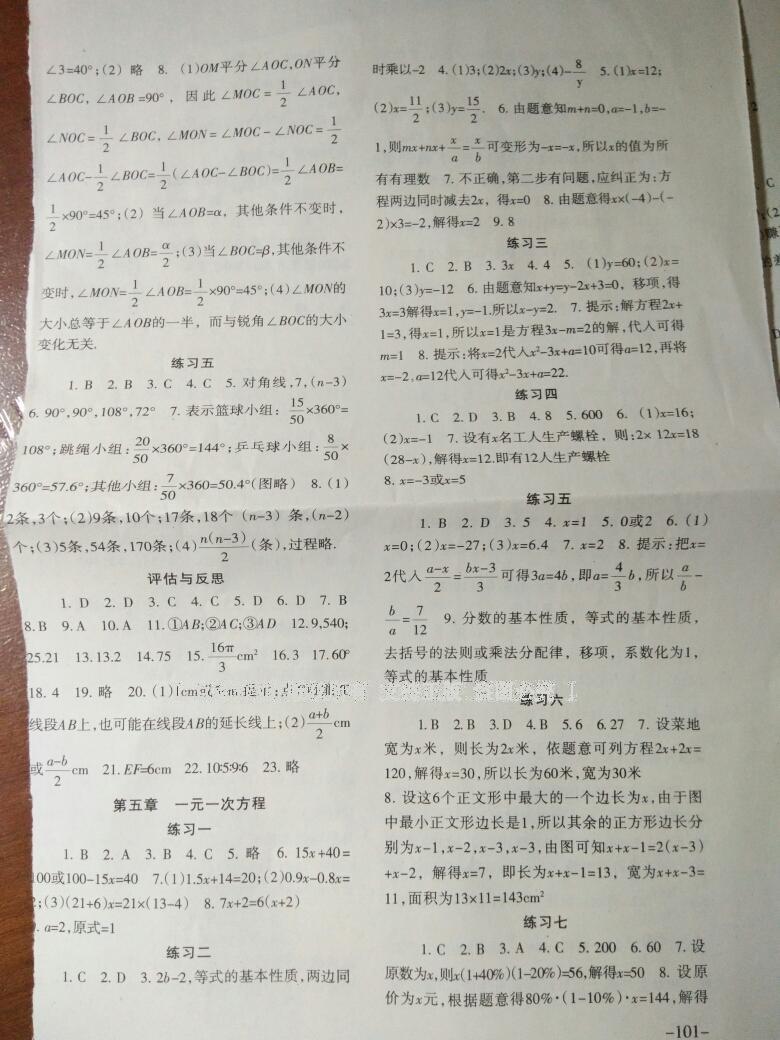 ∠3=40°;(2) 略 8. (1)OM平分∠AOC,ON平分
∠BOC, ∠AOB=90°, 因此∠MOC=1/2∠AOC,
∠NOC=1/2∠BOC, ∠MON=∠MOC-∠NOC=1/2
∠AOC-1/2∠BOC=1/2(∠AOC-∠BOC)=1/2∠AOB=
1/2×90°=45°;(2) 当∠AOB=α, 其他条件不变时,
∠MON=1/2∠AOB=α/2;(3)当∠BOC=β,其他条件不
变时,∠MON=1/2∠AOB=1/2×90°=45°;(4)∠MON的
大小总等于∠AOB的一半, 而与锐角∠BOC的大小
变化无关.
练习五
1. B 2. B 3. C 4. C 5. 对角线,7,(n-3)
6. 90°,90°,108°,72° 7. 表示篮球小组: 15/50×360°=
108°;跳绳小组: 20/50×360°=144°;乒乓球小组: 8/50×
360°=57.6°;其他小组: 7/50×360=50.4°(图略) 8. (1)
2条,3个;(2)9条,10个;17条,18个 (n-3) 条,(n-2)
个;(3)5条,54条,170条;(4)n(n-3)/2(条),过程略.
评估与反思
1. D 2. D 3. C 4. C 5. D 6. D 7. B
8. B 9. A 10. A 11. ①AB;②AC;③AD 12. 9,540;
25.21 13. 13.2 14. 75 15. 16π/3cm² 16. 3 17. 60°
18. 4 19. 略 20. (1)
线段AB上,也可能在线段AB的延长线上;(2)a+b/2cm
或a-b/2cm 21. EF=6cm 22. 10:5:9:6 23. 略
第五章 一元一次方程
练习一
1. B 2. A 3. B 4. C 5. 略 6. 15x+40=
100或100-15x=40 7.(1)1.5x+14=20;(2)0.9x-0.8x=
2;(3)(21+6)x=21×(13-4) 8. 7x+2=6(x+2)
. a=2,原式=1
练习二
1. C 2. D 3. 2b-2,等式的基本性质,两边同
时乘以-2 4. (1)3;(2)2x;(3)y;(4)-8/y 5. (1)x=12;
(2)x=11/2;(3)y=15/2. 6. 由题意知m+n=0,a=-1,b=-
1,则mx+nx+x/a=x/b可变形为-x=-x,所以x的值为所
有有理数 7. 不正确,第二步有问题,应纠正为:方
程两边同时减去2x, 得x=0 8. 由题意得x×(-4)-(-
2)×3=-2,解得x=2 9. 8
练习三
1. C 2. B 3. 3x 4. 4 5. (1)y=60;(2)x=
10;(3)y=-12 6. 由题意知x+y=y-2x+3=0, 移项,得
3x=3解得x=1,y=-1.所以x-y=2. 7. 提示:解方程2x+
1=3,得x=1,所以x=1是方程3x-m=2的解,代人可得
m=1 8. 提示:将x=2代人x²-3x+a=10可得a=12,再将
x=-2,a=12代人可得x²-3x+a=22.
练习四
1. C 2. D 3. B 4. 8 5. 600 6. (1)x=16;
(2)x=-1 7. 设有x名工人生产螺栓, 则:2×12x=18
(28-x),解得x=12.即有12人生产螺栓
8. x=-3或x=5
练习五
1. B 2. D 3. 5 4. x=1 5. 0或2 6. (1)
x=0;(2)x=-27;(3)x=6.4 7. x=2 8. 提示:把x=
2代人a-x/2=bx-3/3可得3a=4b,即a=4/3b,所以a/b-
b/a=7/12 9. 分数的基本性质, 等式的基本性质,
去括号的法则或乘法分配律, 移项, 系数化为1,
等式的基本性质
练习六
1. B 2. B 3. D 4. B 5. 6 6. 27 7. 设菜地
宽为x米, 则长为2x米, 依题意可列方程2x+2x=
120,解得x=30,所以长为60米,宽为30米
8. 设这6个正文形中最大的一个边长为x,由于图
中最小正文形边长是1,所以其余的正方形边长分
别为x-1,x-2,x-3,x-3,由图可知x+x-1=2(x-3)
+x-2, 解得x=7, 即长为x+x-1=13, 宽为x+x-3=
11,面积为13×11=143cm²
练习七
1. C 2. B 3. A 4. C 5. 200 6. 60 7. 设
原数为x,则x(1+40%)(1-20%)=56,解得x=50 8. 设原
价为x元,根据题意得80%·(1-10%)·x=144,解得
-101-